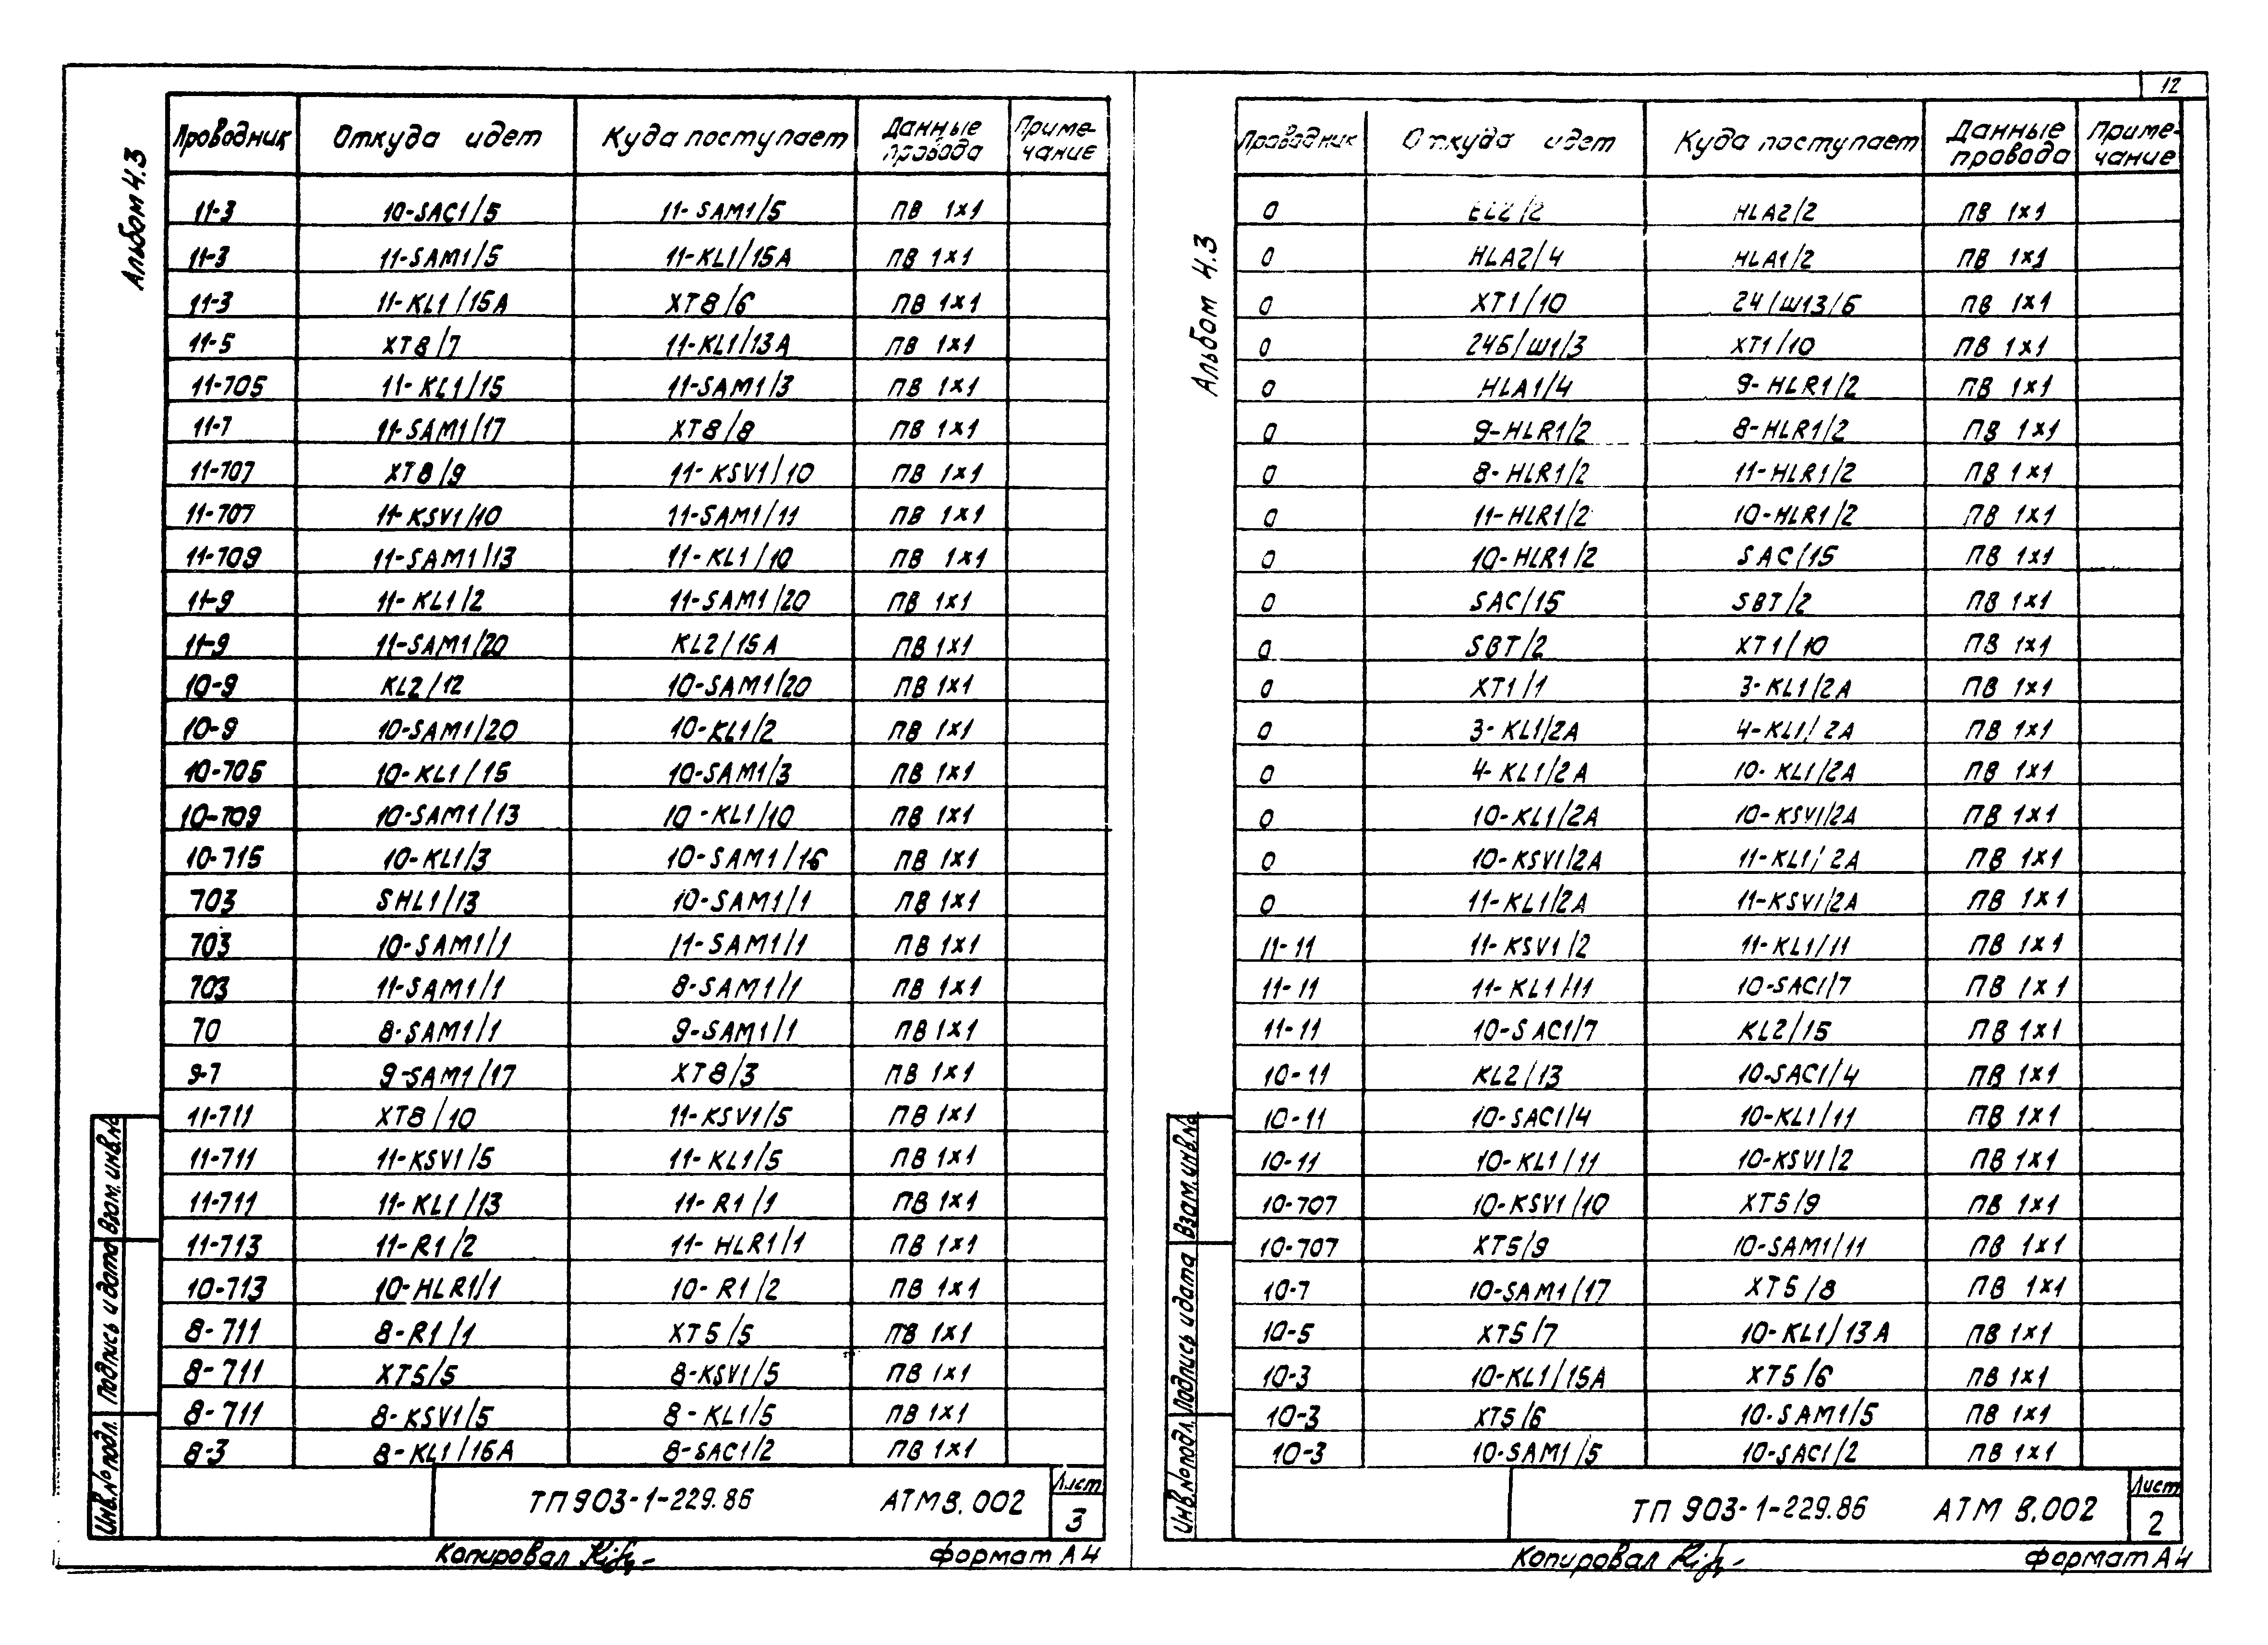 12
Альбом 4.3
Проводник Откуда идет Куда поступает Данные провода Примечание
11-3 10-SAC1/5 11-SAM1/5 ПВ 1×1
11-3 11-SAM1/5 11-KL1/15A ПВ 1×1
11-3 11-KL1/15A XT8/6 ПВ 1×1
11-5 XT8/7 11-KL1/13A ПВ 1×1
11-705 11-KL1/15 11-SAM1/3 ПВ 1×1
11-7 11-SAM1/17 XT8/8 ПВ 1×1
11-707 XT8/9 11-KSV1/10 ПВ 1×1
11-707 11-KSV1/10 11-SAM1/11 ПВ 1×1
11-709 11-SAM1/13 11-KL1/10 ПВ 1×1
11-9 11-KL1/2 11-SAM1/20 ПВ 1×1
11-9 11-SAM1/20 KL2/15A ПВ 1×1
10-9 KL2/12 10-SAM1/20 ПВ 1×1
10-9 10-SAM1/20 10-KL1/2 ПВ 1×1
10-705 10-KL1/15 10-SAM1/3 ПВ 1×1
10-709 10-SAM1/13 10-KL1/10 ПВ 1×1
10-715 10-KL1/3 10-SAM1/16 ПВ 1×1
703 SHL1/13 10-SAM1/1 ПВ 1×1
703 10-SAM1/1 11-SAM1/1 ПВ 1×1
703 11-SAM1/1 8-SAM1/1 ПВ 1×1
70 8-SAM1/1 9-SAM1/1 ПВ 1×1
9-7 9-SAM1/17 XT8/3 ПВ 1×1
11-711 XT8/10 11-KSV1/5 ПВ 1×1
11-711 11-KSV1/5 11-KL1/5 ПВ 1×1
11-711 11-KL1/13 11-R1/1 ПВ 1×1
11-713 11-R1/2 11-HLR1/1 ПВ 1×1
10-713 10-HLR1/1 10-R1/2 ПВ 1×1
8-711 8-R1/1 XT5/5 ПВ 1×1
8-711 XT5/5 8-KSV1/5 ПВ 1×1
8-711 8-KSV1/5 8-KL1/5 ПВ 1×1
8-3 8-KL1/15A 8-SAC1/2 ПВ 1×1
Инв.№подл. Подпись и дата Взам.инв.№
ТП 903-1-229.86 АТМ В.002 Лист 3
Копировал формат А4
Альбом 4.3
Проводник Откуда идет Куда поступает Данные провода Примечание
0 EL2/2 HLA2/2 ПВ 1×1
0 HLA2/4 HLA1/2 ПВ 1×1
0 XT1/10 24/Ш13/Б ПВ 1×1
0 24Б/Ш1/3 XT1/10 ПВ 1×1
0 HLA1/4 9-HLR1/2 ПВ 1×1
0 9-HLR1/2 8-HLR1/2 ПВ 1×1
0 8-HLR1/2 11-HLR1/2 ПВ 1×1
0 11-HLR1/2 10-HLR1/2 ПВ 1×1
0 10-HLR1/2 SAC/15 ПВ 1×1
0 SAC/15 SBT/2 ПВ 1×1
0 SBT/2 XT1/10 ПВ 1×1
0 XT1/1 3-KL1/2A ПВ 1×1
0 3-KL1/2A 4-KL1/2A ПВ 1×1
0 4-KL1/2A 10-KL1/2A ПВ 1×1
0 10-KL1/2A 10-KSV1/2A ПВ 1×1
0 10-KSV1/2A 11-KL1/2A ПВ 1×1
0 11-KL1/2A 11-KSV1/2A ПВ 1×1
11-11 11-KSV1/2 11-KL1/11 ПВ 1×1
11-11 11-KL1/11 10-SAC1/7 ПВ 1×1
11-11 10-SAC1/7 KL2/15 ПВ 1×1
10-11 KL2/13 10-SAC1/4 ПВ 1×1
10-11 10-SAC1/4 10-KL1/11 ПВ 1×1
10-11 10-KL1/11 10-KSV1/2 ПВ 1×1
10-707 10-KSV1/10 XT5/9 ПВ 1×1
10-707 XT5/9 10-SAM1/11 ПВ 1×1
10-7 10-SAM1/17 XT5/8 ПВ 1×1
10-5 XT5/7 10-KL1/13A ПВ 1×1
10-3 10-KL1/15A XT5/6 ПВ 1×1
10-3 XT5/6 10-SAM1/5 ПВ 1×1
10-3 10-SAM1/5 10-SAC1/2 ПВ 1×1
Инв.№подл. Подпись и дата Взам.инв.№
ТП 903-1-229.86 АТМ В.002 Лист 2
Копировал формат А4